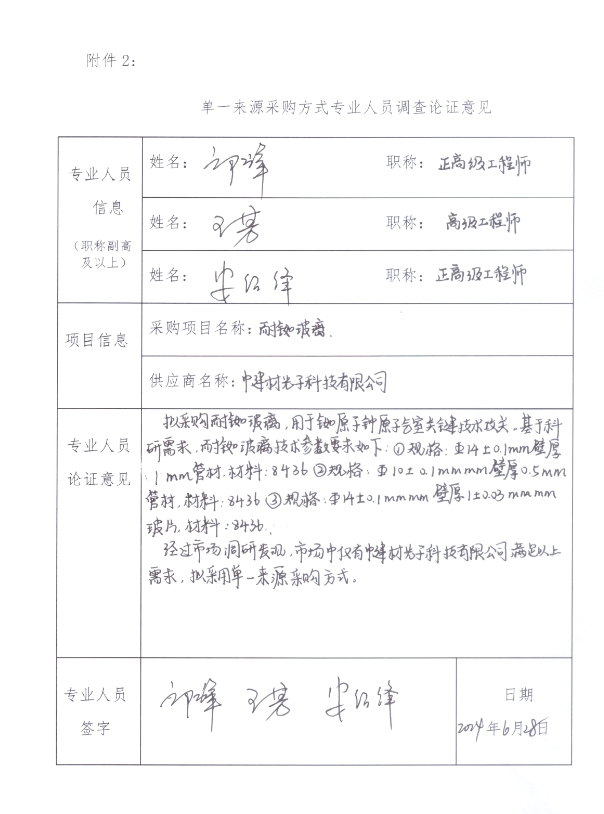 附件 2：
单一来源采购方式专业人员调查论证意见
专业人员
信息
（职称副高
及以上）
姓名：
职称：正高级工程师
姓名：王
职称：高级工程师
姓名：安红绛
职称：正高级工程师
项目信息
采购项目名称：耐铷玻璃.
供应商名称：中建材光子科技有限公司
专业人员
论证意见
拟采购耐铷玻璃，用于铷原子钟原子气室关键技术攻关。基于科
研需求，耐铷玻璃技术参数要求如下：①规格：Φ14±0.1mm壁厚
1mm管材，材料：8436 ②规格：Φ10±0.1mmmm壁厚0.5mm
管材，材料：8436 ③规格：Φ14±0.1mmmm壁厚1±0.03mmmm
玻片，材料：8436.
经过市场调研发现，市场中仅有中建材光子科技有限公司满足以上
需求，拟采用单一来源采购方式。
专业人员
签字
王 安红绛
日期
2024年6月28日